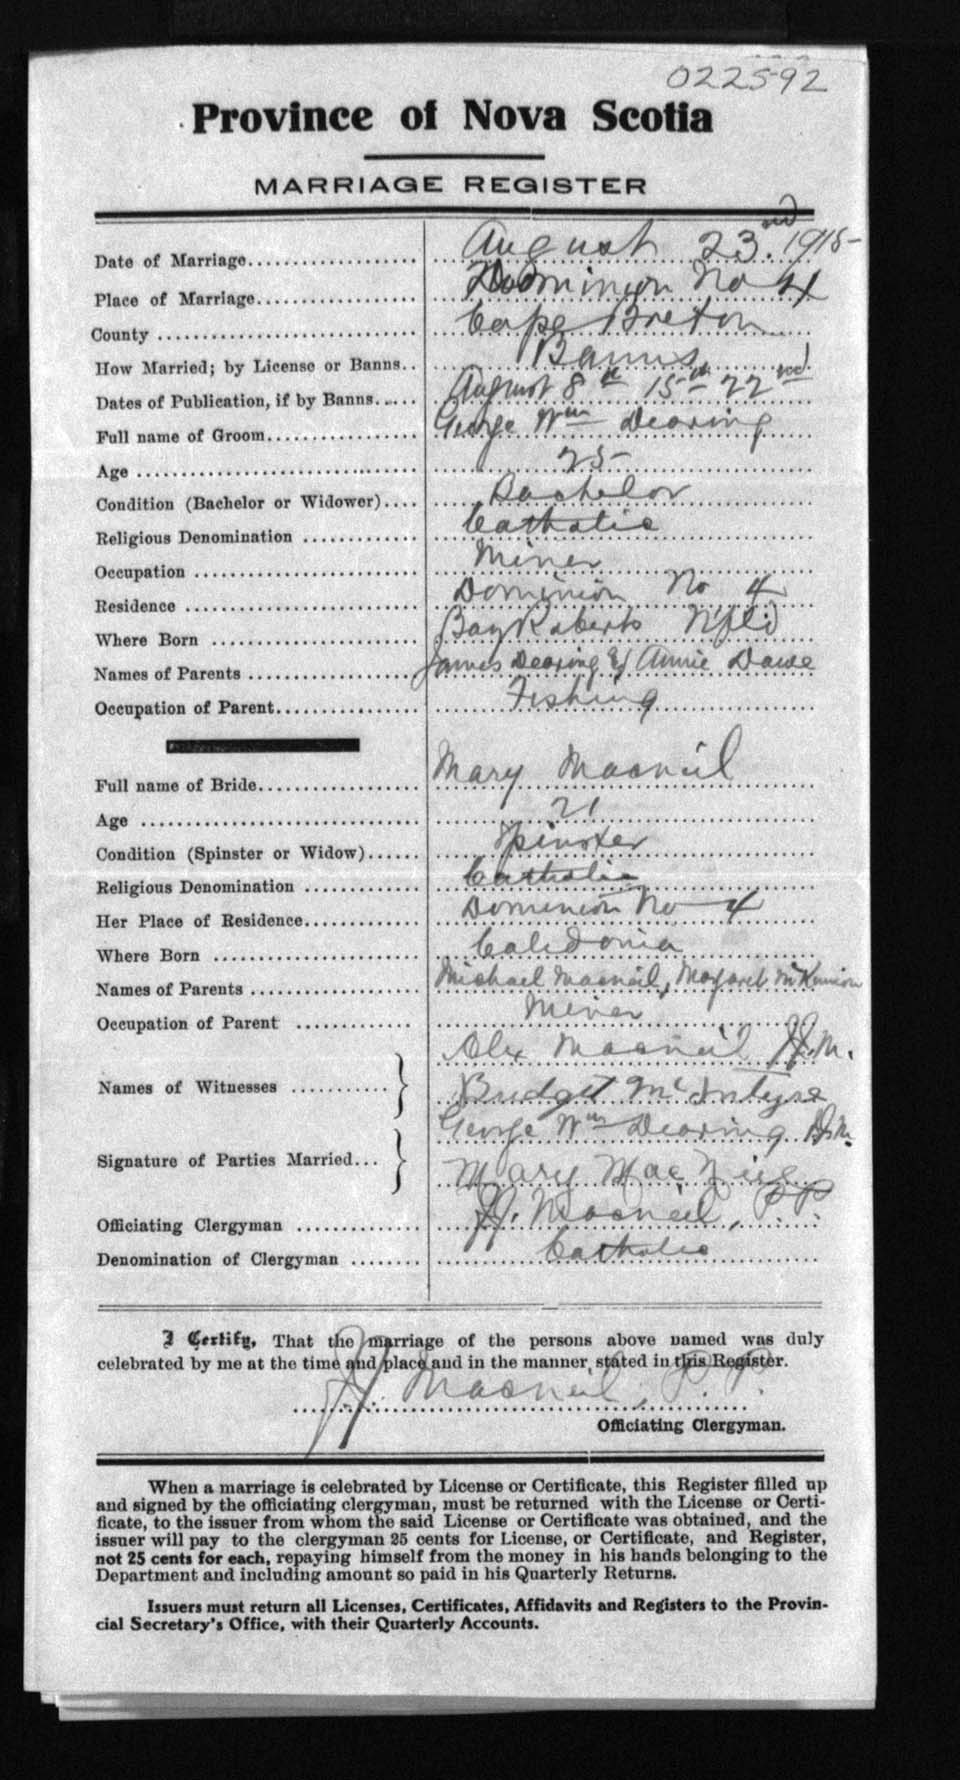 022592
Province of Nova Scotia
MARRIAGE REGISTER
Date of Marriage August 23rd. 1915
Place of Marriage Dominion No 4
County Cape Breton
How Married; by License or Banns Banns
Dates of Publication, if by Banns August 8th 15th 22nd
Full name of Groom George Wm Dearing
Age 25
Condition (Bachelor or Widower) Bachelor
Religious Denomination Catholic
Occupation Miner
Residence Dominion No 4
Where Born Bay Roberts Nfld
Names of Parents James Dearing & Annie Dawe
Occupation of Parent Fishing
Full name of Bride Mary Macneil
Age 21
Condition (Spinster or Widow) Spinster
Religious Denomination Catholic
Her Place of Residence Dominion No 4
Where Born Caledonia
Names of Parents Michael Macneil, Margaret McKinnon
Occupation of Parent Miner
Names of Witnesses Alex Macneil
Bridget McIntyre
Signature of Parties Married George Wm Dearing
Mary MacNeil
Officiating Clergyman Macneil, P.P.
Denomination of Clergyman Catholic
I Certify, That the marriage of the persons above named was duly
celebrated by me at the time and place and in the manner stated in this Register.
Macneil, P. P.
Officiating Clergyman.
When a marriage is celebrated by License or Certificate, this Register filled up
and signed by the officiating clergyman, must be returned with the License or Certi-
ficate, to the issuer from whom the said License or Certificate was obtained, and the
issuer will pay to the clergyman 25 cents for License, or Certificate, and Register,
not 25 cents for each, repaying himself from the money in his hands belonging to the
Department and including amount so paid in his Quarterly Returns.
Issuers must return all Licenses, Certificates, Affidavits and Registers to the Provin-
cial Secretary's Office, with their Quarterly Accounts.